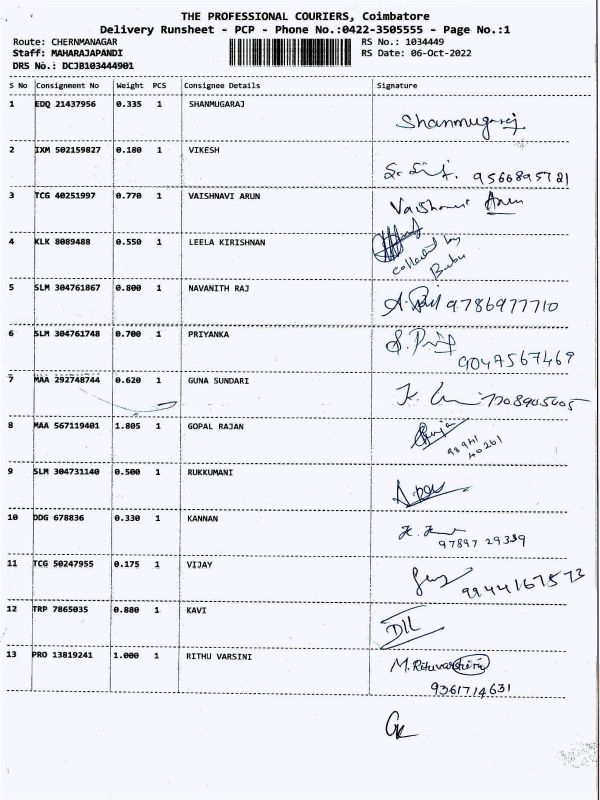 THE PROFESSIONAL COURIERS, Coimbatore
Delivery Runsheet - PCP - Phone No.:0422-3505555 - Page No.:1
Route: CHERNMANAGAR RS No.: 1034449
Staff: MAHARAJAPANDI RS Date: 06-Oct-2022
DRS No.: DCJB103444901
S No Consignment No Weight PCS Consignee Details Signature
1 EDQ 21437956 0.335 1 SHANMUGARAJ
Shanmugaraj
2 IXM 502159827 0.180 1 VIKESH
9566895781
3 TCG 40251997 0.770 1 VAISHNAVI ARUN
Vaishnavi Arun
4 KLK 8089488 0.550 1 LEELA KIRISHNAN
collected by
Babu
5 SLM 304761867 0.800 1 NAVANITH RAJ
9786977710
6 SLM 304761748 0.700 1 PRIYANKA
9047567469
7 MAA 292748744 0.620 1 GUNA SUNDARI
8 MAA 567119401 1.805 1 GOPAL RAJAN
98941
40261
9 SLM 304731140 0.500 1 RUKKUMANI
10 DDG 678836 0.330 1 KANNAN
97897 29339
11 TCG 50247955 0.175 1 VIJAY
9944167573
12 TRP 7865035 0.880 1 KAVI
13 PRO 13819241 1.000 1 RITHU VARSINI
M. Rithuvarshini
9361714631